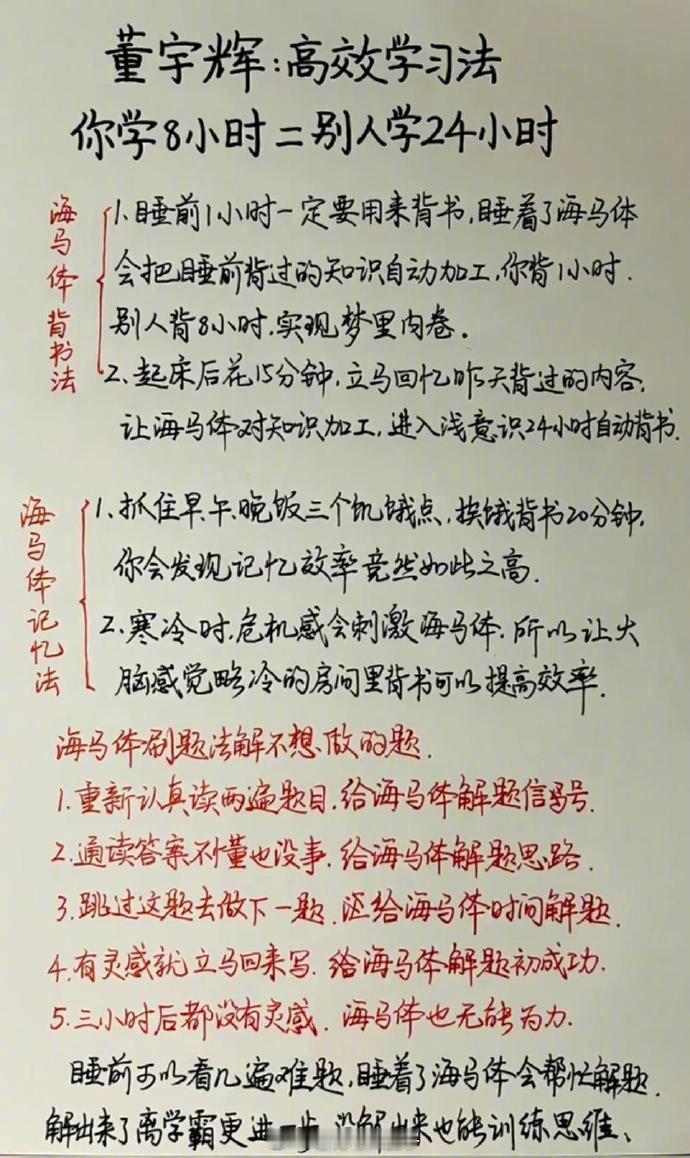 董宇辉:高效学习法
你学8小时=别人学24小时
海马体背书法
1.睡前1小时一定要用来背书,睡着了海马体
会把睡前背过的知识自动加工,你背1小时.
别人背8小时,实现梦里内卷。
2.起床后花15分钟,立马回忆昨天背过的内容,
让海马体对知识加工,进入浅意识24小时自动背书.
海马体记忆法
1.抓住早、午、晚饭三个饥饿点,挨饿背书20分钟,
你会发现记忆效率竟然如此之高.
2.寒冷时,危机感会刺激海马体.所以让大
脑感觉略冷的房间里背书可以提高效率.
海马体刷题法解不想做的题.
1.重新认真读两遍题目.给海马体解题信号.
2.通读答案不懂也没事.给海马体解题思路.
3.跳过这题去做下一题.还给海马体时间解题.
4.有灵感就立马回来写.给海马体解题初成功.
5.三小时后都没有灵感.海马体也无能为力.
睡前可以看几遍难题,睡着了海马体会帮忙解题.
解出来了离学霸更进一步.没解出来也能训练思维、